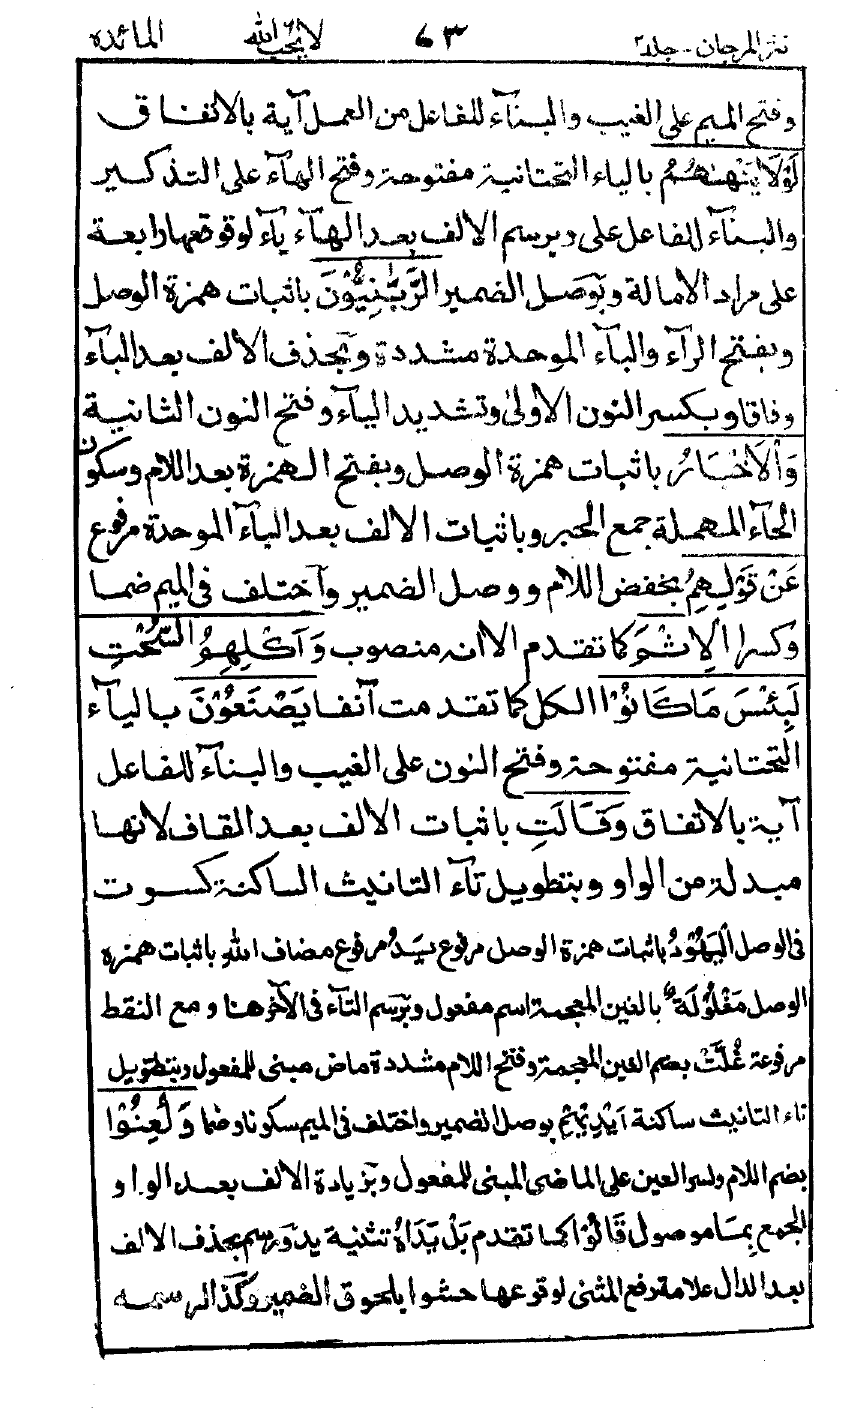 نثر المرجان - جلد ٢ ٦٣ لا يحب الله المائده
وفتح الميم على الغيب والبنآء للفاعل من العمل آية بالاتفاق
لَوْلَا يَنْهٰىهُمُ بالياء التحتانية مفتوحة وفتح الهآء على التذكير
والبنآء للفاعل على ويرسم الالف بعد الهآء يآء لوقوعها رابعة
على مراد الامالة وبوصل الضمير الرَّبّٰنِيُّوْنَ باثبات همزة الوصل
وبفتح الرآء والبآء الموحدة مشددة وبحذف الالف بعد البآء
وفاقا وبكسر النون الاولىٰ وتشديد اليآء وفتح النون الثانية
وَالْاَحْبَارُ باثبات همزة الوصل وبفتح الهمزة بعد اللام وسكون
الحآء المهملة جمع الحبر وباثبات الالف بعد البآء الموحدة مرفوع
عَنْ قَوْلِهِمُ بخفض اللام ووصل الضمير وآختلف فى الميم ضما
وكسرا الْاِثْمَ كما تقدم الا انه منصوب وَاَكْلِهِمُ السُّحْتَ
لَبِئْسَ مَا كَانُوْا الكل كما تقدمت آنفا يَصْنَعُوْنَ باليآء
التحتانية مفتوحة وفتح النون على الغيب والبنآء للفاعل
آية بالاتفاق وَقَالَتِ باثبات الالف بعد القاف لانها
مبدلة من الواو وبتطويل تآء التانيث الساكنة كسرت
فى الوصل الْيَهُوْدُ باثبات همزة الوصل مرفوع يَدُ مرفوع مضاف اللهِ باثبات همزة
الوصل مَغْلُوْلَةٌ بالغين المعجمة اسم مفعول وبرسم التآء فى الآخر هنا ومع النقط
مرفوعة غُلَّتْ بضم الغين المعجمة وفتح اللام مشددة ماض مبنى للمفعول وبتطويل
تاء التانيث ساكنة اَيْدِيْهِمْ بوصل الضمير واختلف فى الميم سكونا وضما وَلُعِنُوْا
بضم اللام وكسر العين على الماضى المبنى للمفعول وبزيادة الالف بعد الواو
الجمع بِمَا موصول قَالُوْا كما تقدم بَلْ يَدَاهُ تثنية يد ورسم بحذف الالف
بعد الدال علامة رفع المثنى لوقوعها حشوا بلحوق الضمير وكذا رسمه